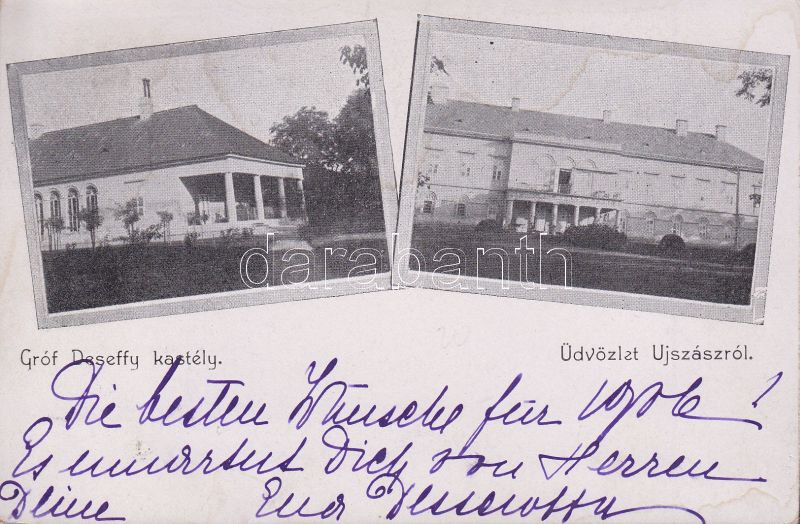 darabanth
Gróf Deseffy kastély.
Üdvözlet Ujszászról.
Die besten Wünsche für 1906!
Es umarmt Dich von Herren
Deine